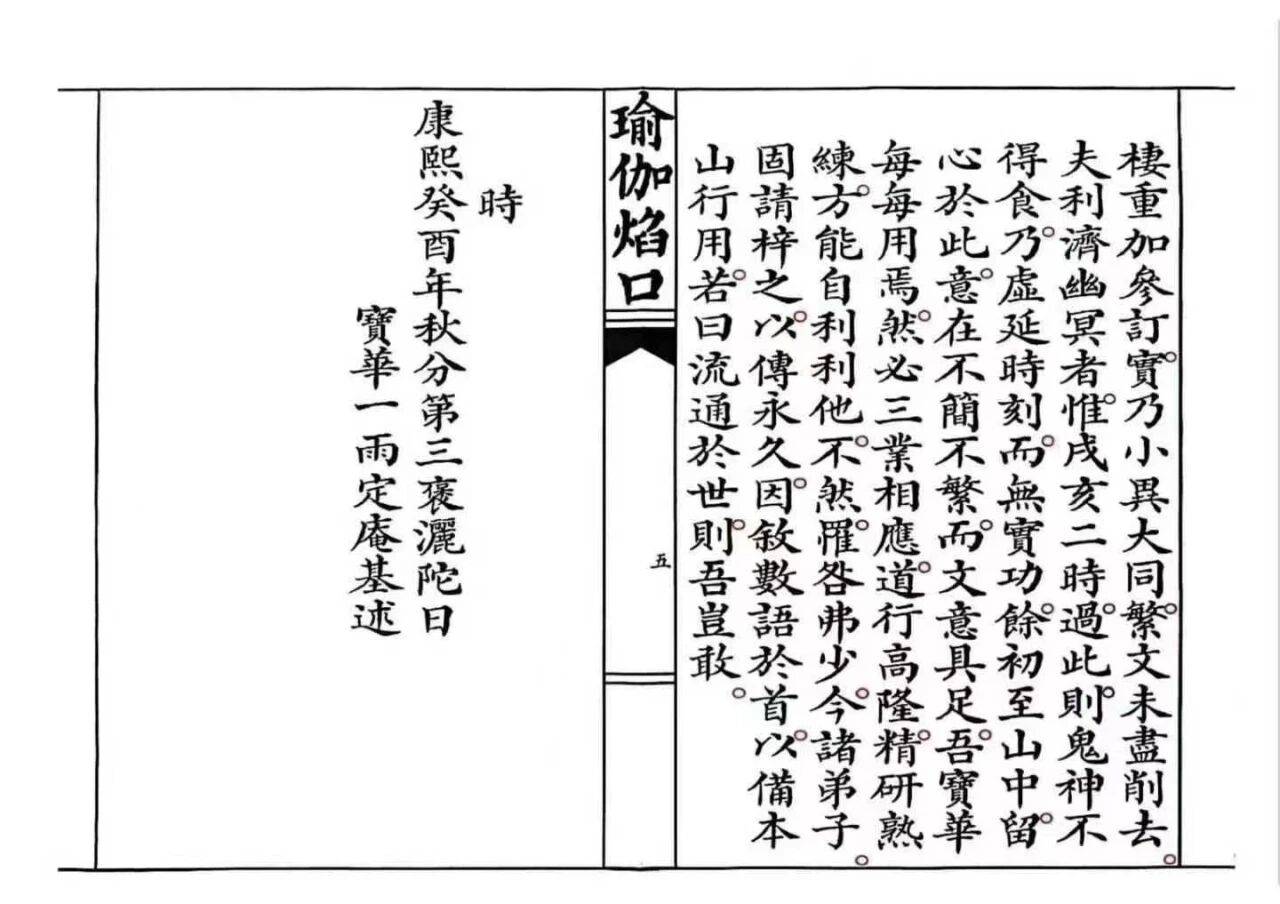 棲重加參訂。實乃小異大同。繁文未盡削去。
夫利濟幽冥者。惟戌亥二時。過此則。鬼神不
得食。乃虛延時刻。而無實功。餘初至山中。留
心於此意。在不簡不繁。而文意具足。吾寶華
每每用焉。然必三業相應。道行高隆。精研熟
練。方能自利利他。不然。罹咎弗少。今諸弟子。
固請梓之。以傳永久。因敘數語於首。以備本
山行用。若曰流通於世。則吾豈敢。
瑜伽焰口
五
時
康熙癸酉年秋分第三褒灑陀日
寶華一雨定庵基述